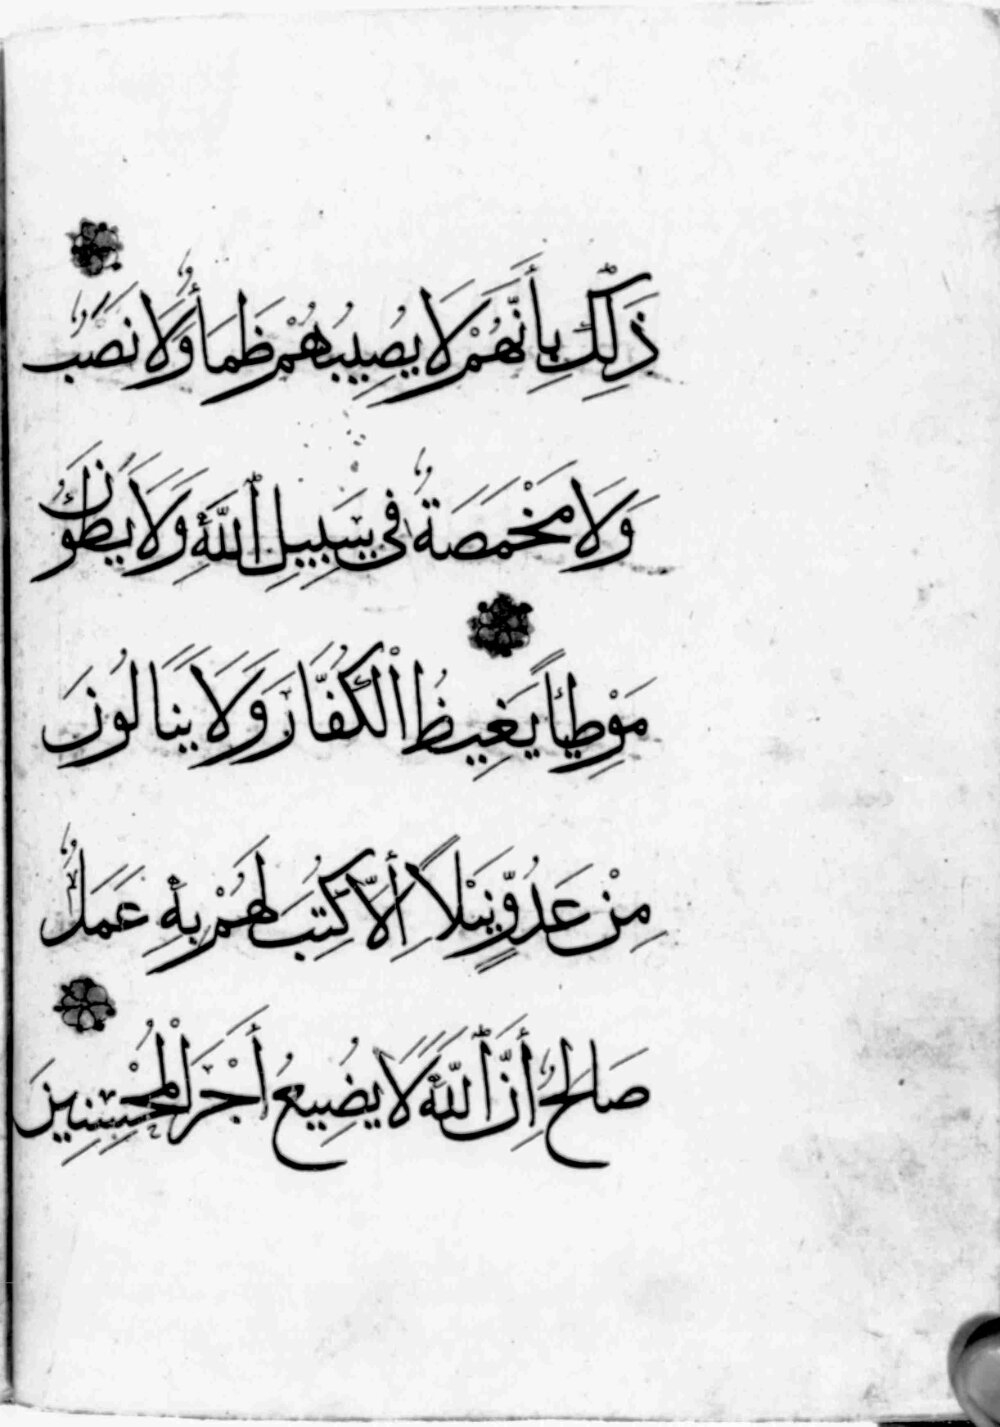 ذَلِكَ بِأَنَّهُمْ لَا يُصِيبُهُمْ ظَمَأٌ وَلَا نَصَبٌ
وَلَا مَخْمَصَةٌ فِي سَبِيلِ ٱللَّهِ وَلَا يَطَؤُنَ
مَوْطِئًا يَغِيظُ الْكُفَّارَ وَلَا يَنَالُونَ
مِنْ عَدُوٍّ نَيْلًا إِلَّا كُتِبَ لَهُمْ بِهِ عَمَلٌ
صَالِحٌ إِنَّ ٱللَّهَ لَا يُضِيعُ أَجْرَ الْمُحْسِنِينَ